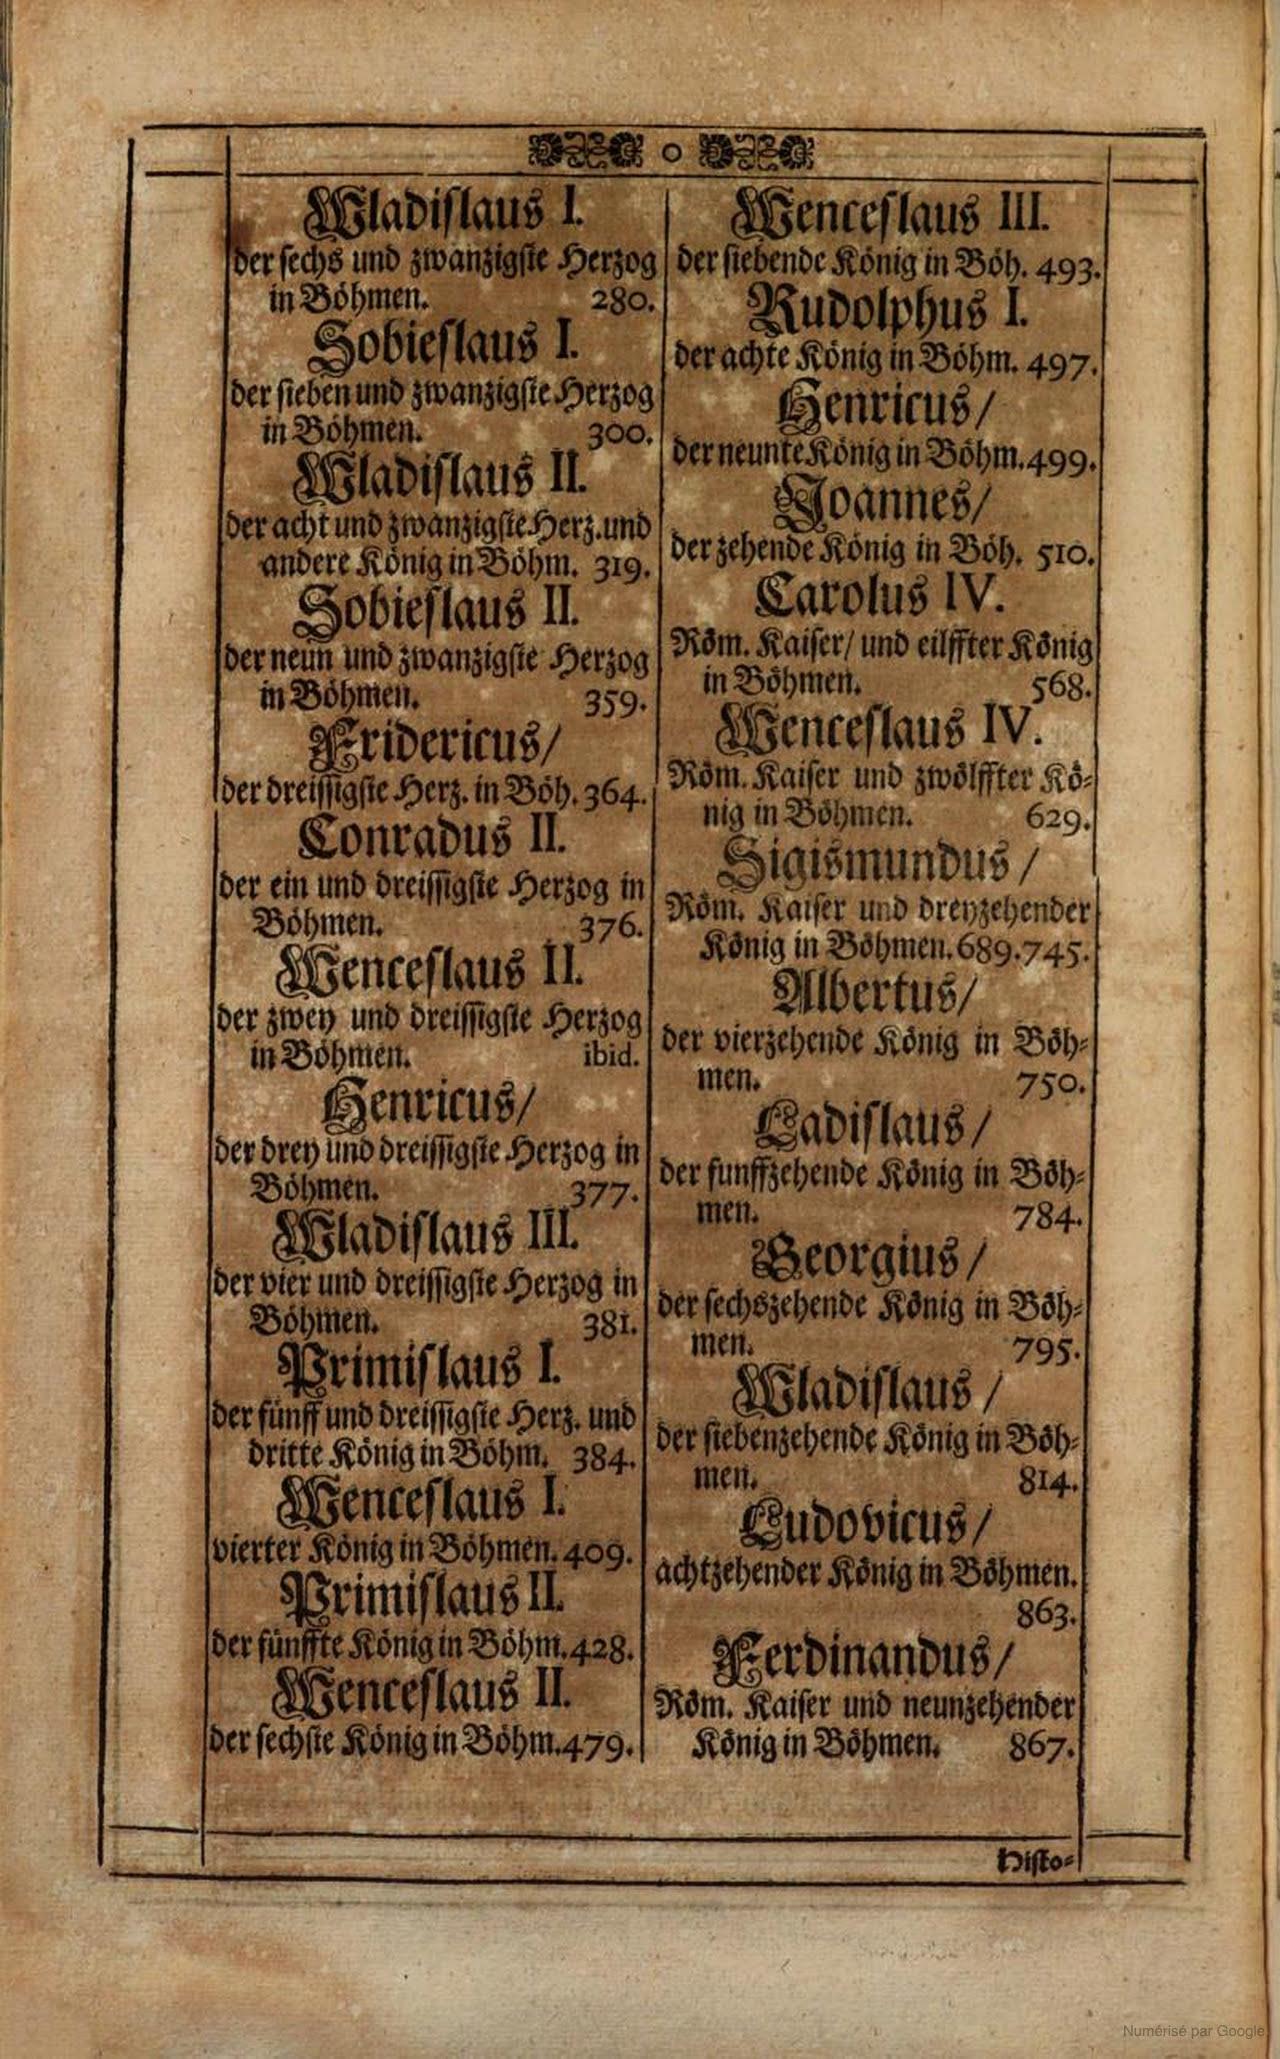 Wladislaus I.
der sechs und zwanzigste Herzog
in Böhmen. 280.
Sobieslaus I.
der sieben und zwanzigste Herzog
in Böhmen. 300.
Wladislaus II.
der acht und zwanzigste Herz. und
andere König in Böhm. 319.
Sobieslaus II.
der neun und zwanzigste Herzog
in Böhmen. 359.
Fridericus/
der dreissigste Herz. in Böh. 364.
Conradus II.
der ein und dreissigste Herzog in
Böhmen. 376.
Wenceslaus II.
der zwey und dreissigste Herzog
in Böhmen. ibid.
Henricus/
der drey und dreissigste Herzog in
Böhmen. 377.
Wladislaus III.
der vier und dreissigste Herzog in
Böhmen. 381.
Primislaus I.
der fünff und dreissigste Herz. und
dritte König in Böhm. 384.
Wenceslaus I.
vierter König in Böhmen. 409.
Primislaus II.
der fünffte König in Böhm. 428.
Wenceslaus II.
der sechste König in Böhm. 479.
Wenceslaus III.
der siebende König in Böh. 493.
Rudolphus I.
der achte König in Böhm. 497.
Henricus/
der neunte König in Böhm. 499.
Joannes/
der zehende König in Böh. 510.
Carolus IV.
Röm. Kaiser/ und eilffter König
in Böhmen. 568.
Wenceslaus IV.
Röm. Kaiser und zwölffter Kö-
nig in Böhmen. 629.
Sigismundus /
Röm. Kaiser und dreyzehender
König in Böhmen. 689. 745.
Albertus/
der vierzehende König in Böh-
men. 750.
Ladislaus /
der funffzehende König in Böh-
men. 784.
Georgius /
der sechszehende König in Böh-
men. 795.
Wladislaus /
der siebenzehende König in Böh-
men. 814.
Ludovicus/
achtzehender König in Böhmen.
863.
Ferdinandus/
Röm. Kaiser und neunzehender
König in Böhmen. 867.
Histo-
Numérisé par Google